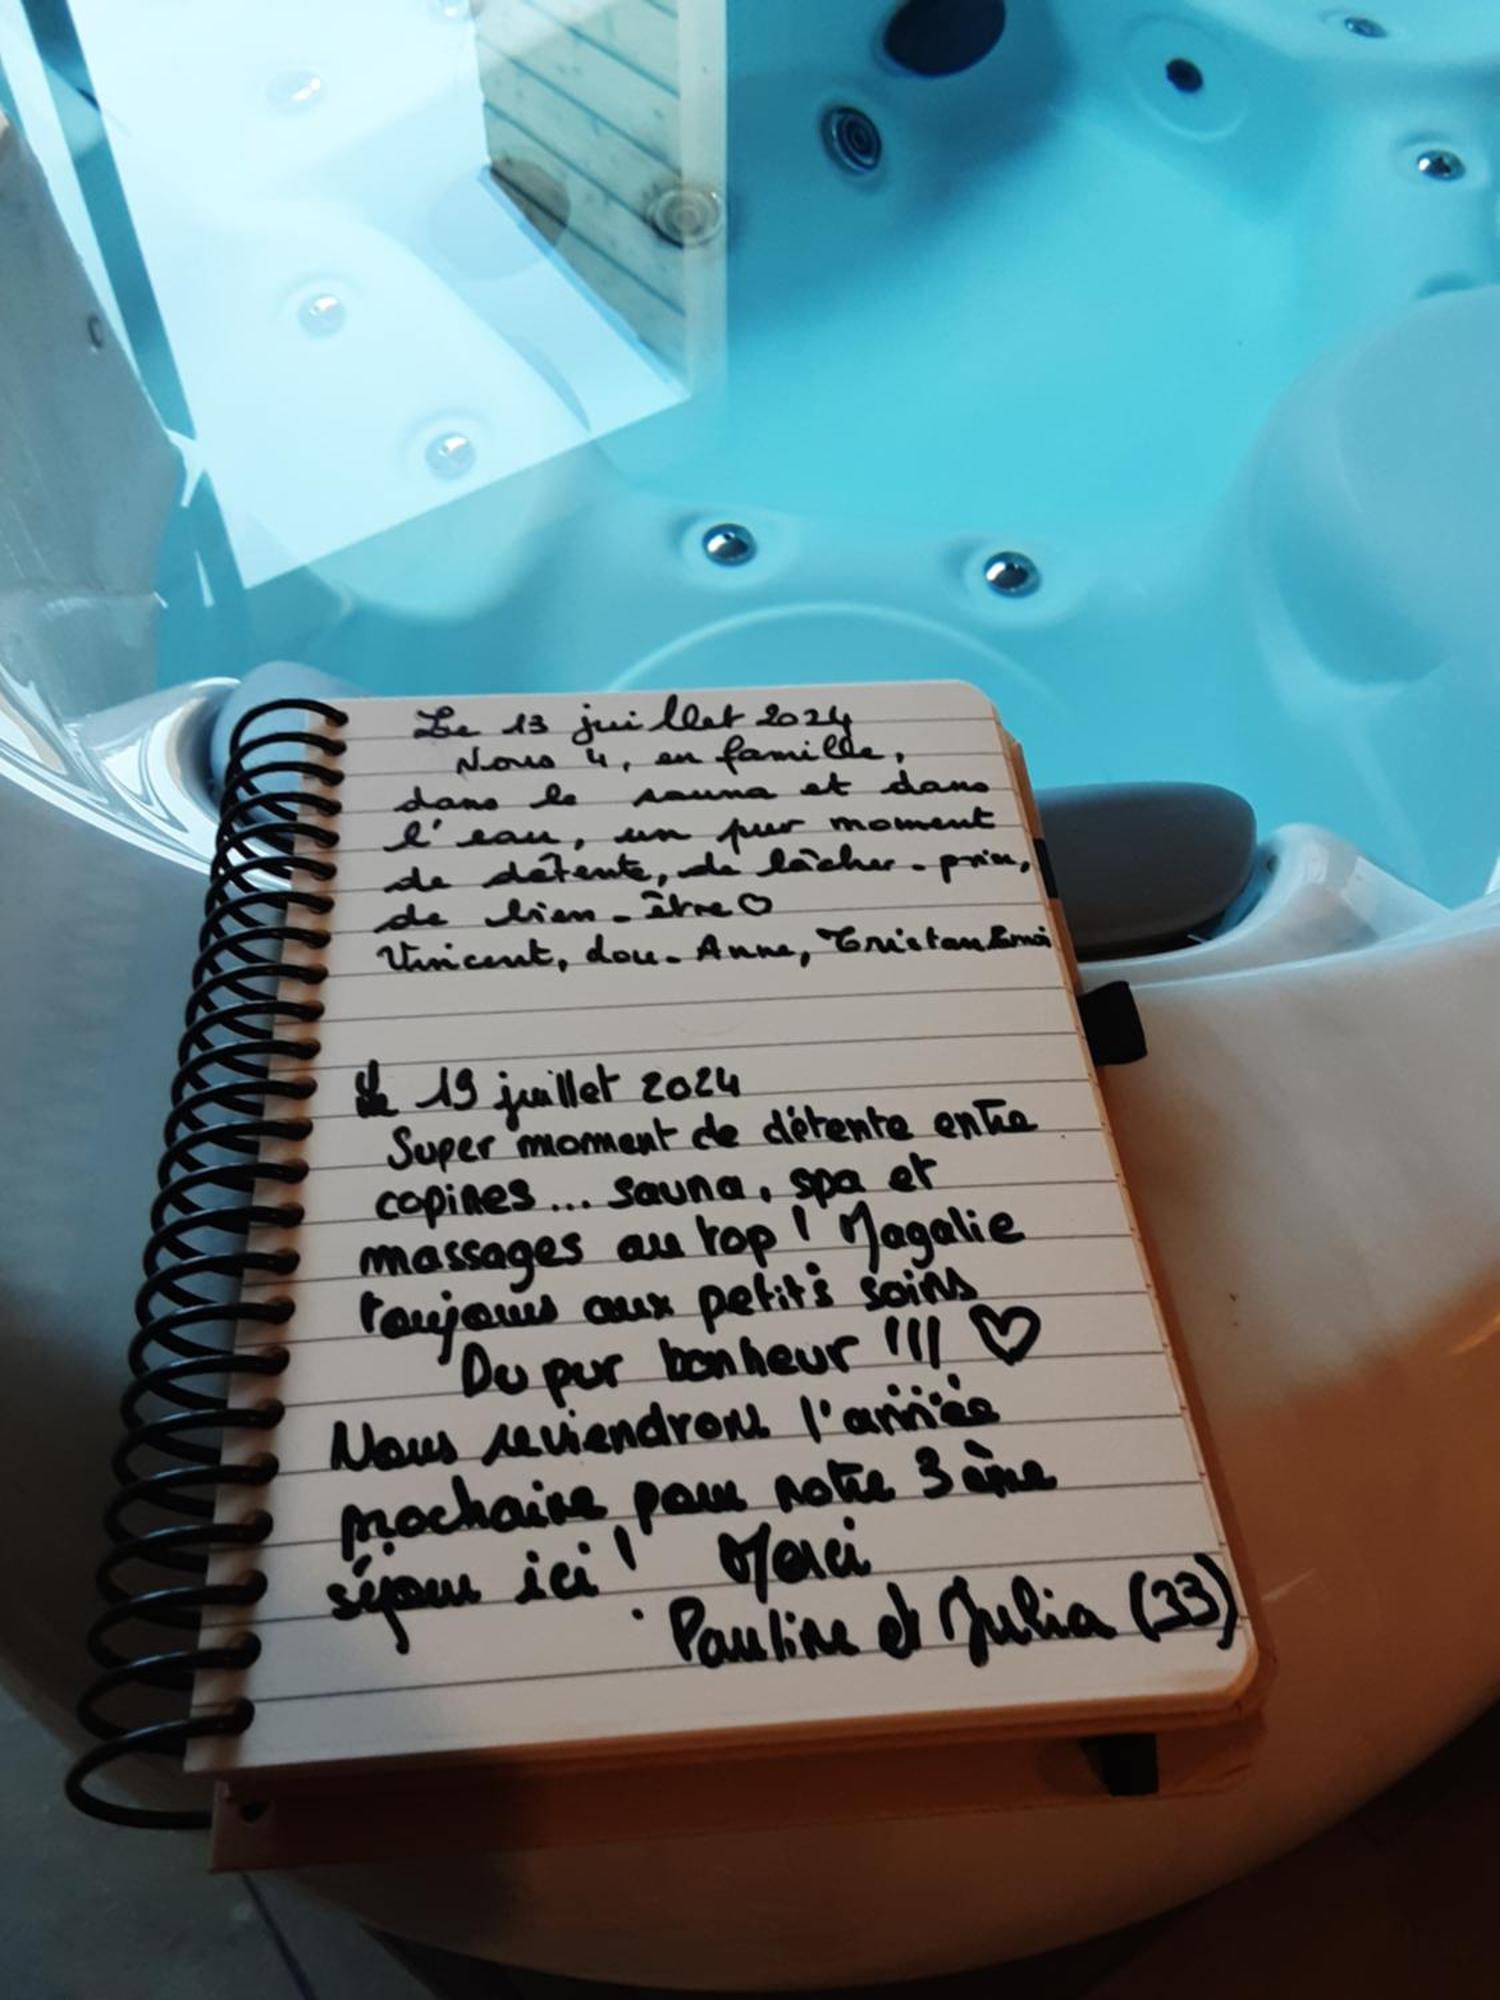 Le 13 juillet 2024
Nous 4, en famille,
dans le sauna et dans
l'eau, un pur moment
de détente, de lâcher-prise,
de bien-être ♡
Vincent, Lou-Anne, Tristan & moi
Le 19 juillet 2024
Super moment de détente entre
copines... sauna, spa et
massages au top ! Magalie
toujours aux petits soins
Du pur bonheur !!! ♡
Nous reviendrons l'année
prochaine pour notre 3ème
séjour ici ! Merci
Pauline et Julia (33)